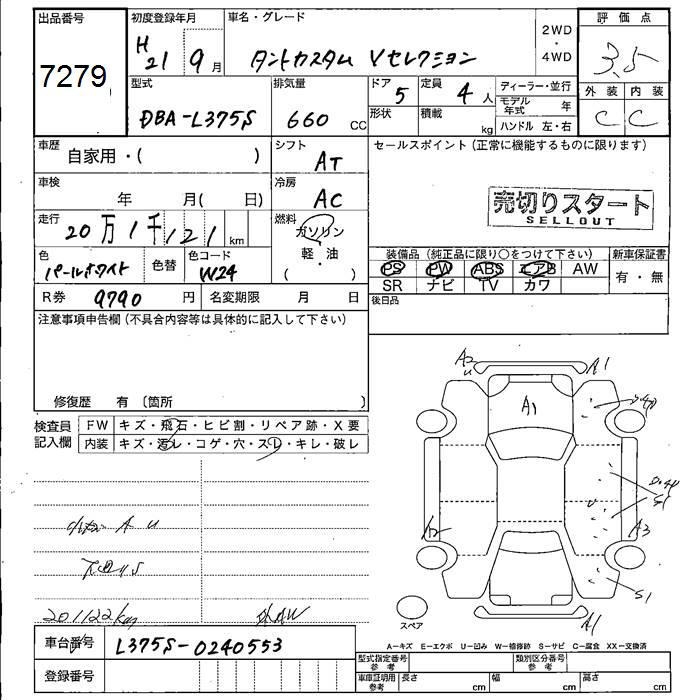 出品番号 初度登録年月 車名・グレード 2WD・4WD 評価点
7279 H21 9月 タントカスタム Vセレクション 3.5
型式 排気量 ドア 定員 ディーラー・並行 外装 内装
DBA-L375S 660 CC 5 4人 モデル年式 年 C C
形状 積載 kg ハンドル 左・右
車歴 自家用・( ) シフト AT セールスポイント(正常に機能するものに限ります)
車検 年 月( 日) 冷房 AC
売切りスタート
SELLOUT
走行 20万1千121 km 燃料 ガソリン 軽・油 ( )
色 パールホワイト 色替 色コード W24
装備品(純正品に限り○をつけて下さい) 新車保証書
PS PW ABS エアB AW 有・無
SR ナビ TV カワ
R券 9790円 名変期限 月 日 後日品
注意事項申告欄(不具合内容等は具体的に記入して下さい)
修復歴 有 〔箇所 〕
検査員記入欄 FW キズ・飛石・ヒビ割・リペア跡・X要
内装 キズ・汚レ・コゲ・穴・スレ・キレ・破レ
A2 U A1
A1
S1
A2 A3
S1
A1
A U
下廻りS
201122km
スペア
車台番号 L375S-0240553
登録番号
A-キズ E-エクボ U-凹み W-補修跡 S-サビ C-腐食 XX-交換済
型式指定番号 参考 類別区分番号 参考
車庫証明用 参考 長さ cm 幅 cm 高さ cm